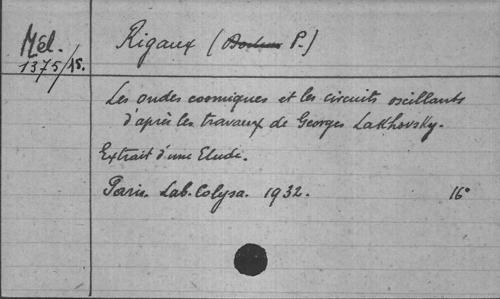 Mél.
1375/15.
Rigaux (Docteur P.)
Les ondes cosmiques et les circuits oscillants
d'après les travaux de Georges Lakhovsky.
Extrait d'une Etude.
Paris. Lab. Colysa. 1932. 16°